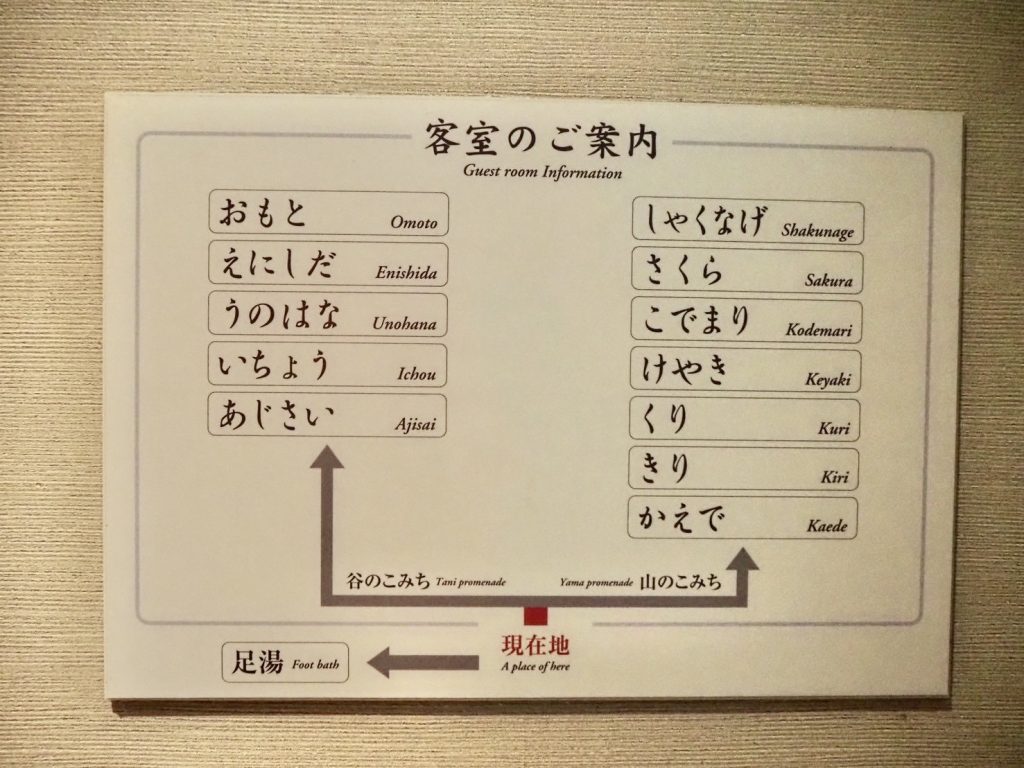 客室のご案内
Guest room Information
おもと Omoto
えにしだ Enishida
うのはな Unohana
いちょう Ichou
あじさい Ajisai
しゃくなげ Shakunage
さくら Sakura
こでまり Kodemari
けやき Keyaki
くり Kuri
きり Kiri
かえで Kaede
谷のこみち Tani promenade
Yama promenade 山のこみち
現在地
A place of here
足湯 Foot bath